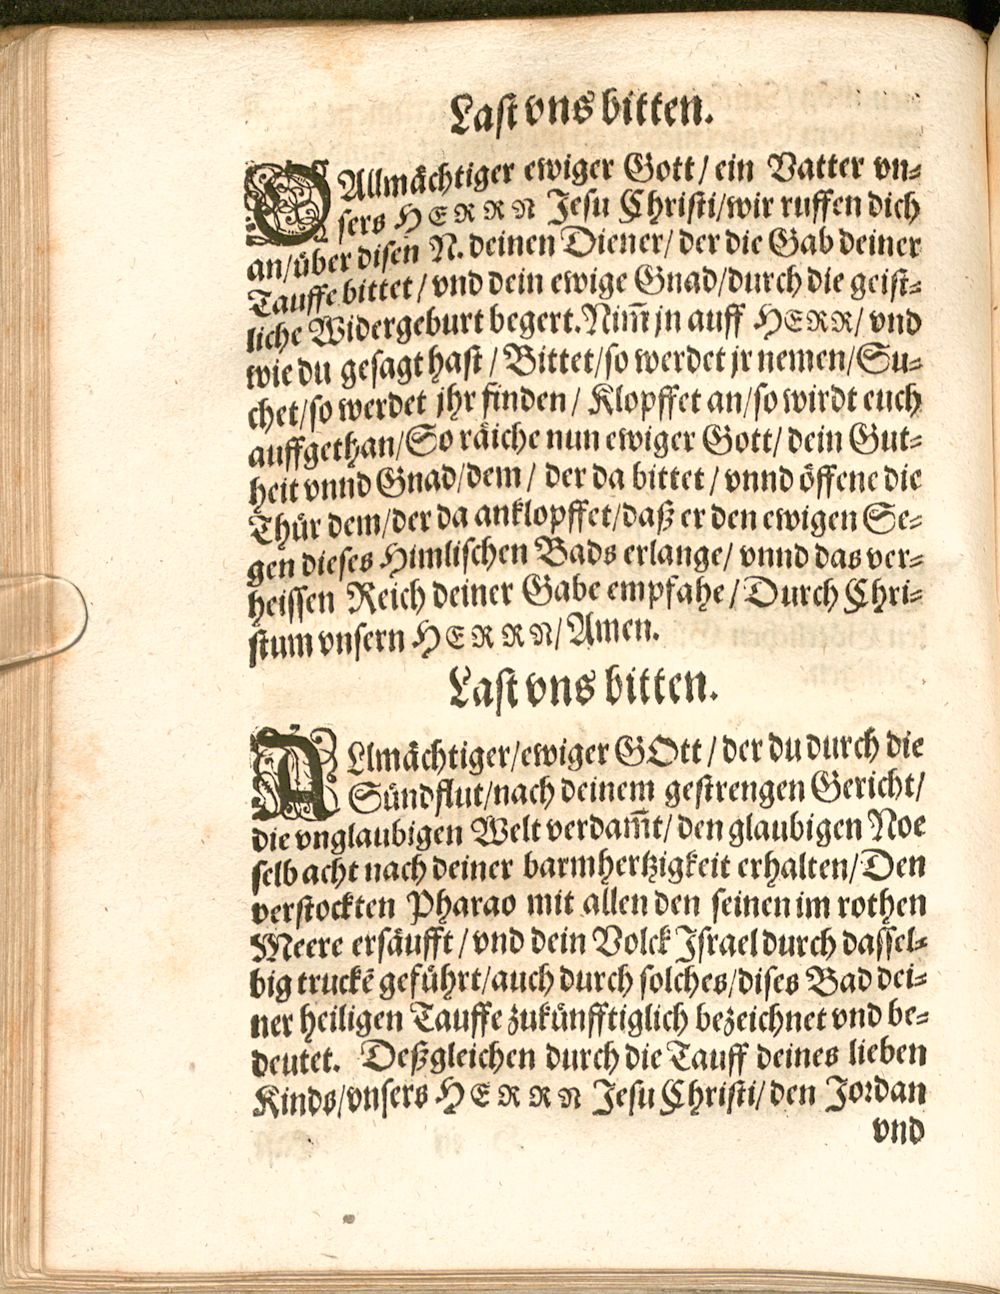 Last vns bitten.
O Allmächtiger ewiger Gott / ein Vatter vn-
sers HERRN Jesu Christi/wir ruffen dich
an/über disen N. deinen Diener/ der die Gab deiner
Tauffe bittet / vnd dein ewige Gnad/durch die geist-
liche Widergeburt begert. Nim̃ jn auff HERR/ vnd
wie du gesagt hast / Bittet/so werdet jr nemen/Su-
chet/so werdet jhr finden / Klopffet an/so wirdt euch
auffgethan/So räiche nun ewiger Gott/ dein Gut-
heit vnnd Gnad/dem / der da bittet / vnnd öffene die
Thür dem/der da anklopffet/daß er den ewigen Se-
gen dieses Himlischen Bads erlange/ vnnd das ver-
heissen Reich deiner Gabe empfahe / Durch Chri-
stum vnsern HERRN/Amen.
Last vns bitten.
ALlmächtiger/ewiger GOtt / der du durch die
Sündflut/nach deinem gestrengen Gericht/
die vnglaubigen Welt verdam̃t/ den glaubigen Noe
selb acht nach deiner barmhertzigkeit erhalten/Den
verstockten Pharao mit allen den seinen im rothen
Meere ersäufft / vnd dein Volck Israel durch dassel-
big truckẽ geführt/auch durch solches/dises Bad dei-
ner heiligen Tauffe zukünfftiglich bezeichnet vnd be-
deutet. Deßgleichen durch die Tauff deines lieben
Kinds/vnsers HERRN Jesu Christi/ den Jordan
vnd